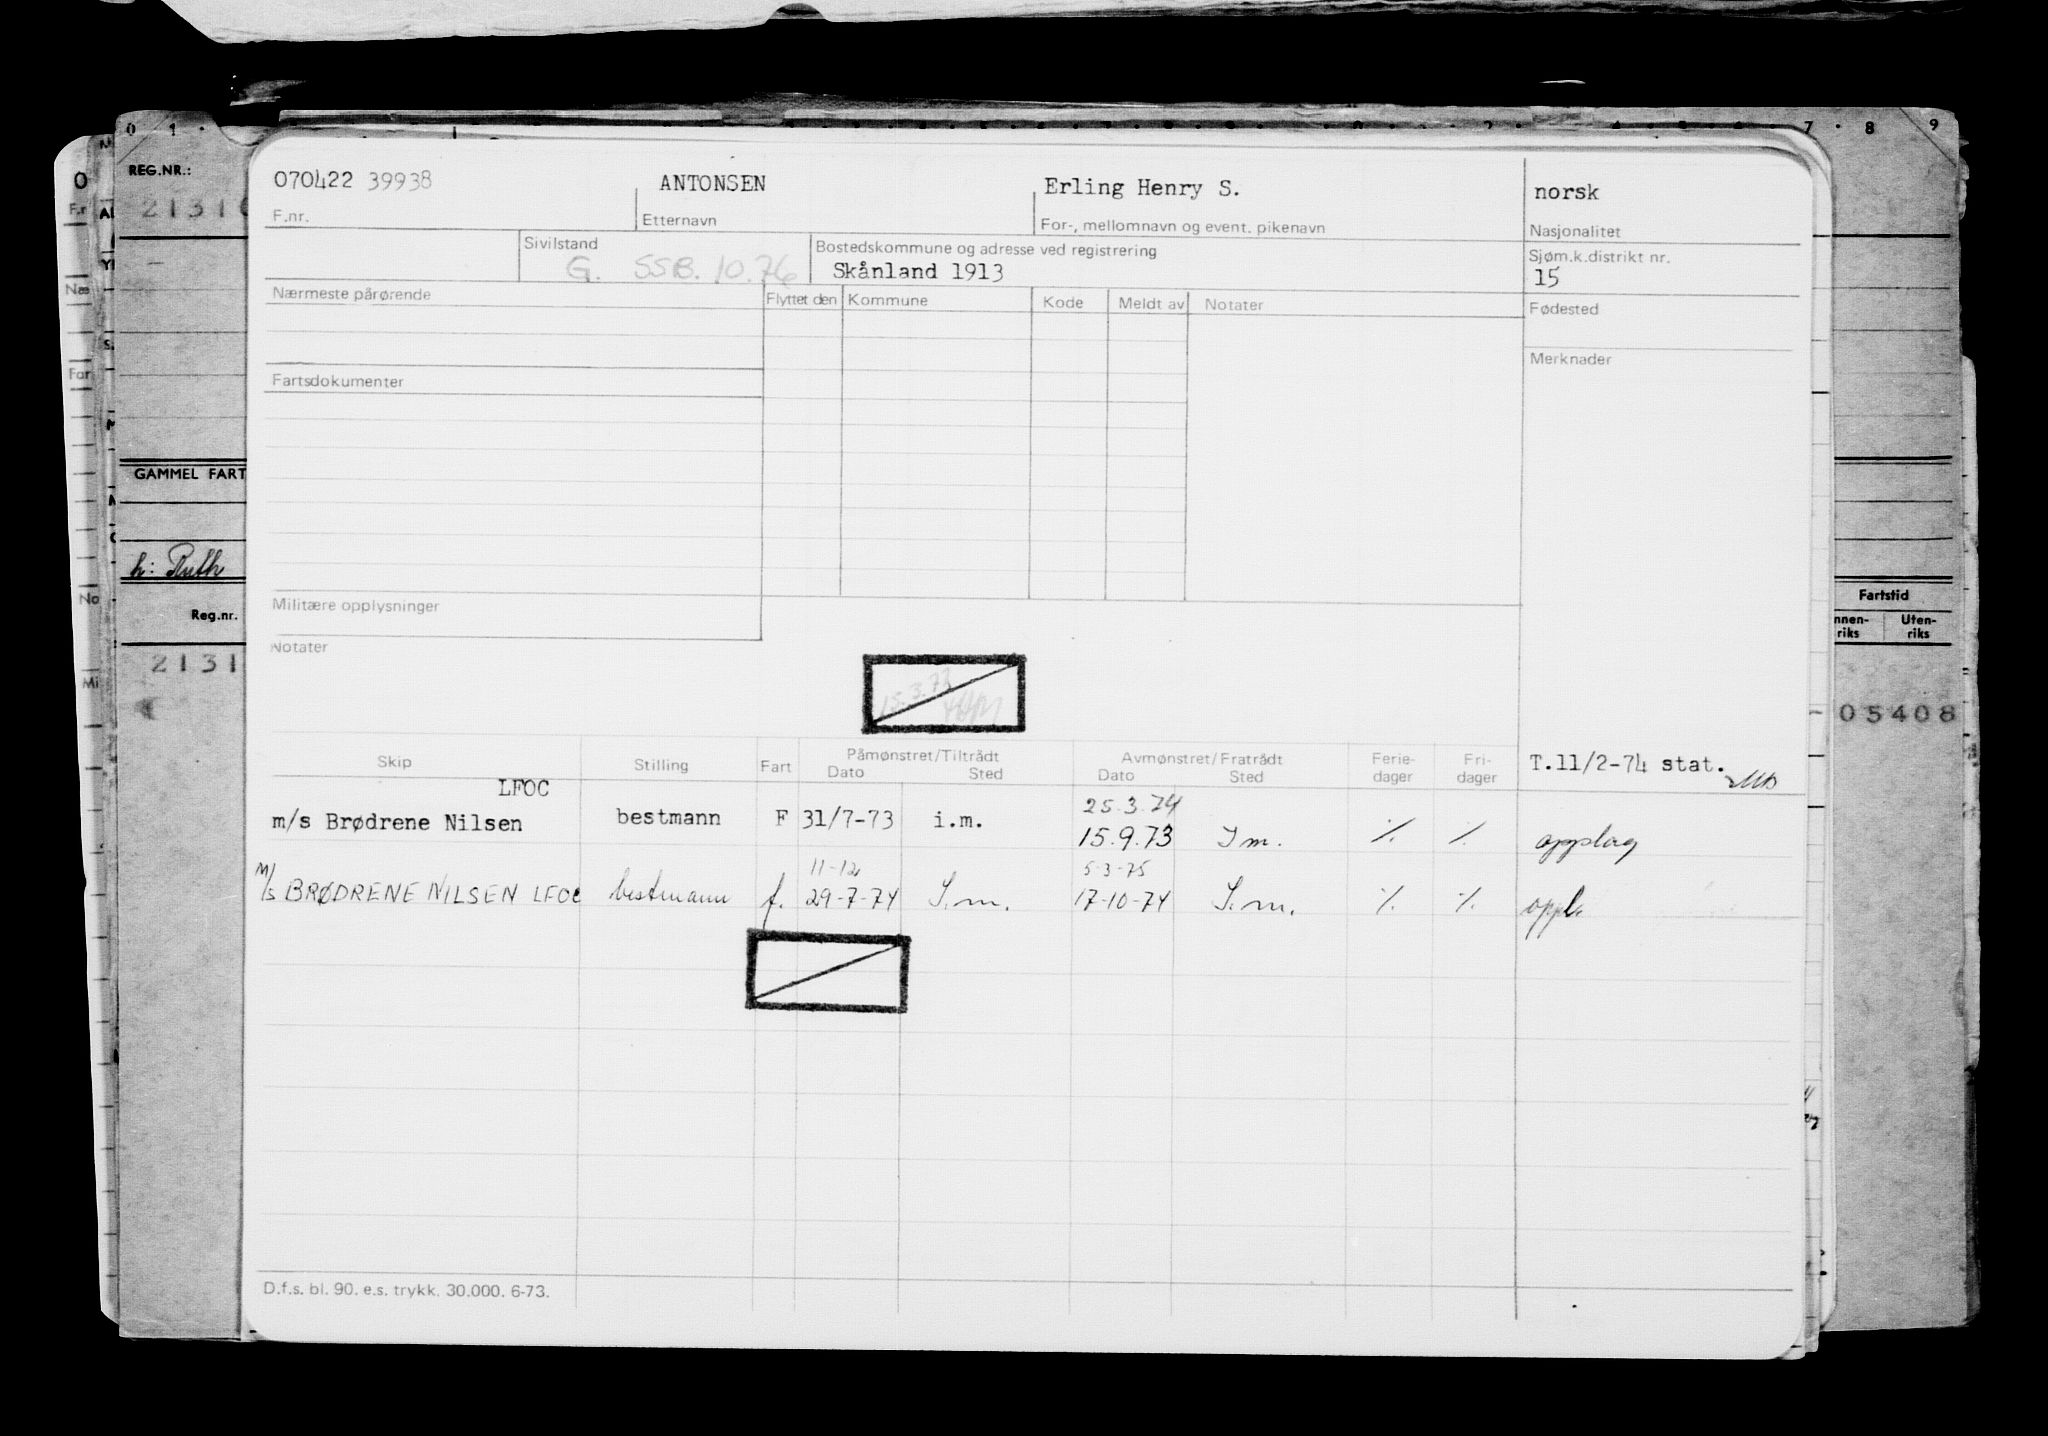 0 1 . 7 . 8 9
REG.NR.:
2131
GAMMEL FART
h: Ruth
Reg.nr.
2131
O
F.r
Næ
Far
No
Mi
070422 39938 ANTONSEN Erling Henry S. norsk
F.nr. Etternavn For-, mellomnavn og event. pikenavn Nasjonalitet
Sivilstand Bostedskommune og adresse ved registrering Sjøm.k.distrikt nr.
G. SSB. 10.76 Skånland 1913 15
Nærmeste pårørende Flyttet den Kommune Kode Meldt av Notater Fødested
Merknader
Fartsdokumenter
Militære opplysninger
Notater
15.3.73
Skip Stilling Fart Påmønstret/Tiltrådt Avmønstret/Fratrådt Ferie- Fri- T.11/2-74 stat.
Dato Sted Dato Sted dager dager
LFOC 25.3.74
m/s Brødrene Nilsen bestmann F 31/7-73 i.m. 15.9.73 I m. ٪ ٪ opplag
11-12 5-3-75
M/s BRØDRENE NILSEN LFOC bestmann f. 29-7-74 I.m. 17-10-74 I.m. ٪ ٪ oppl.
D.f.s. bl. 90. e.s. trykk. 30.000. 6-73.
Fartstid
nnen- Uten-
riks riks
05408